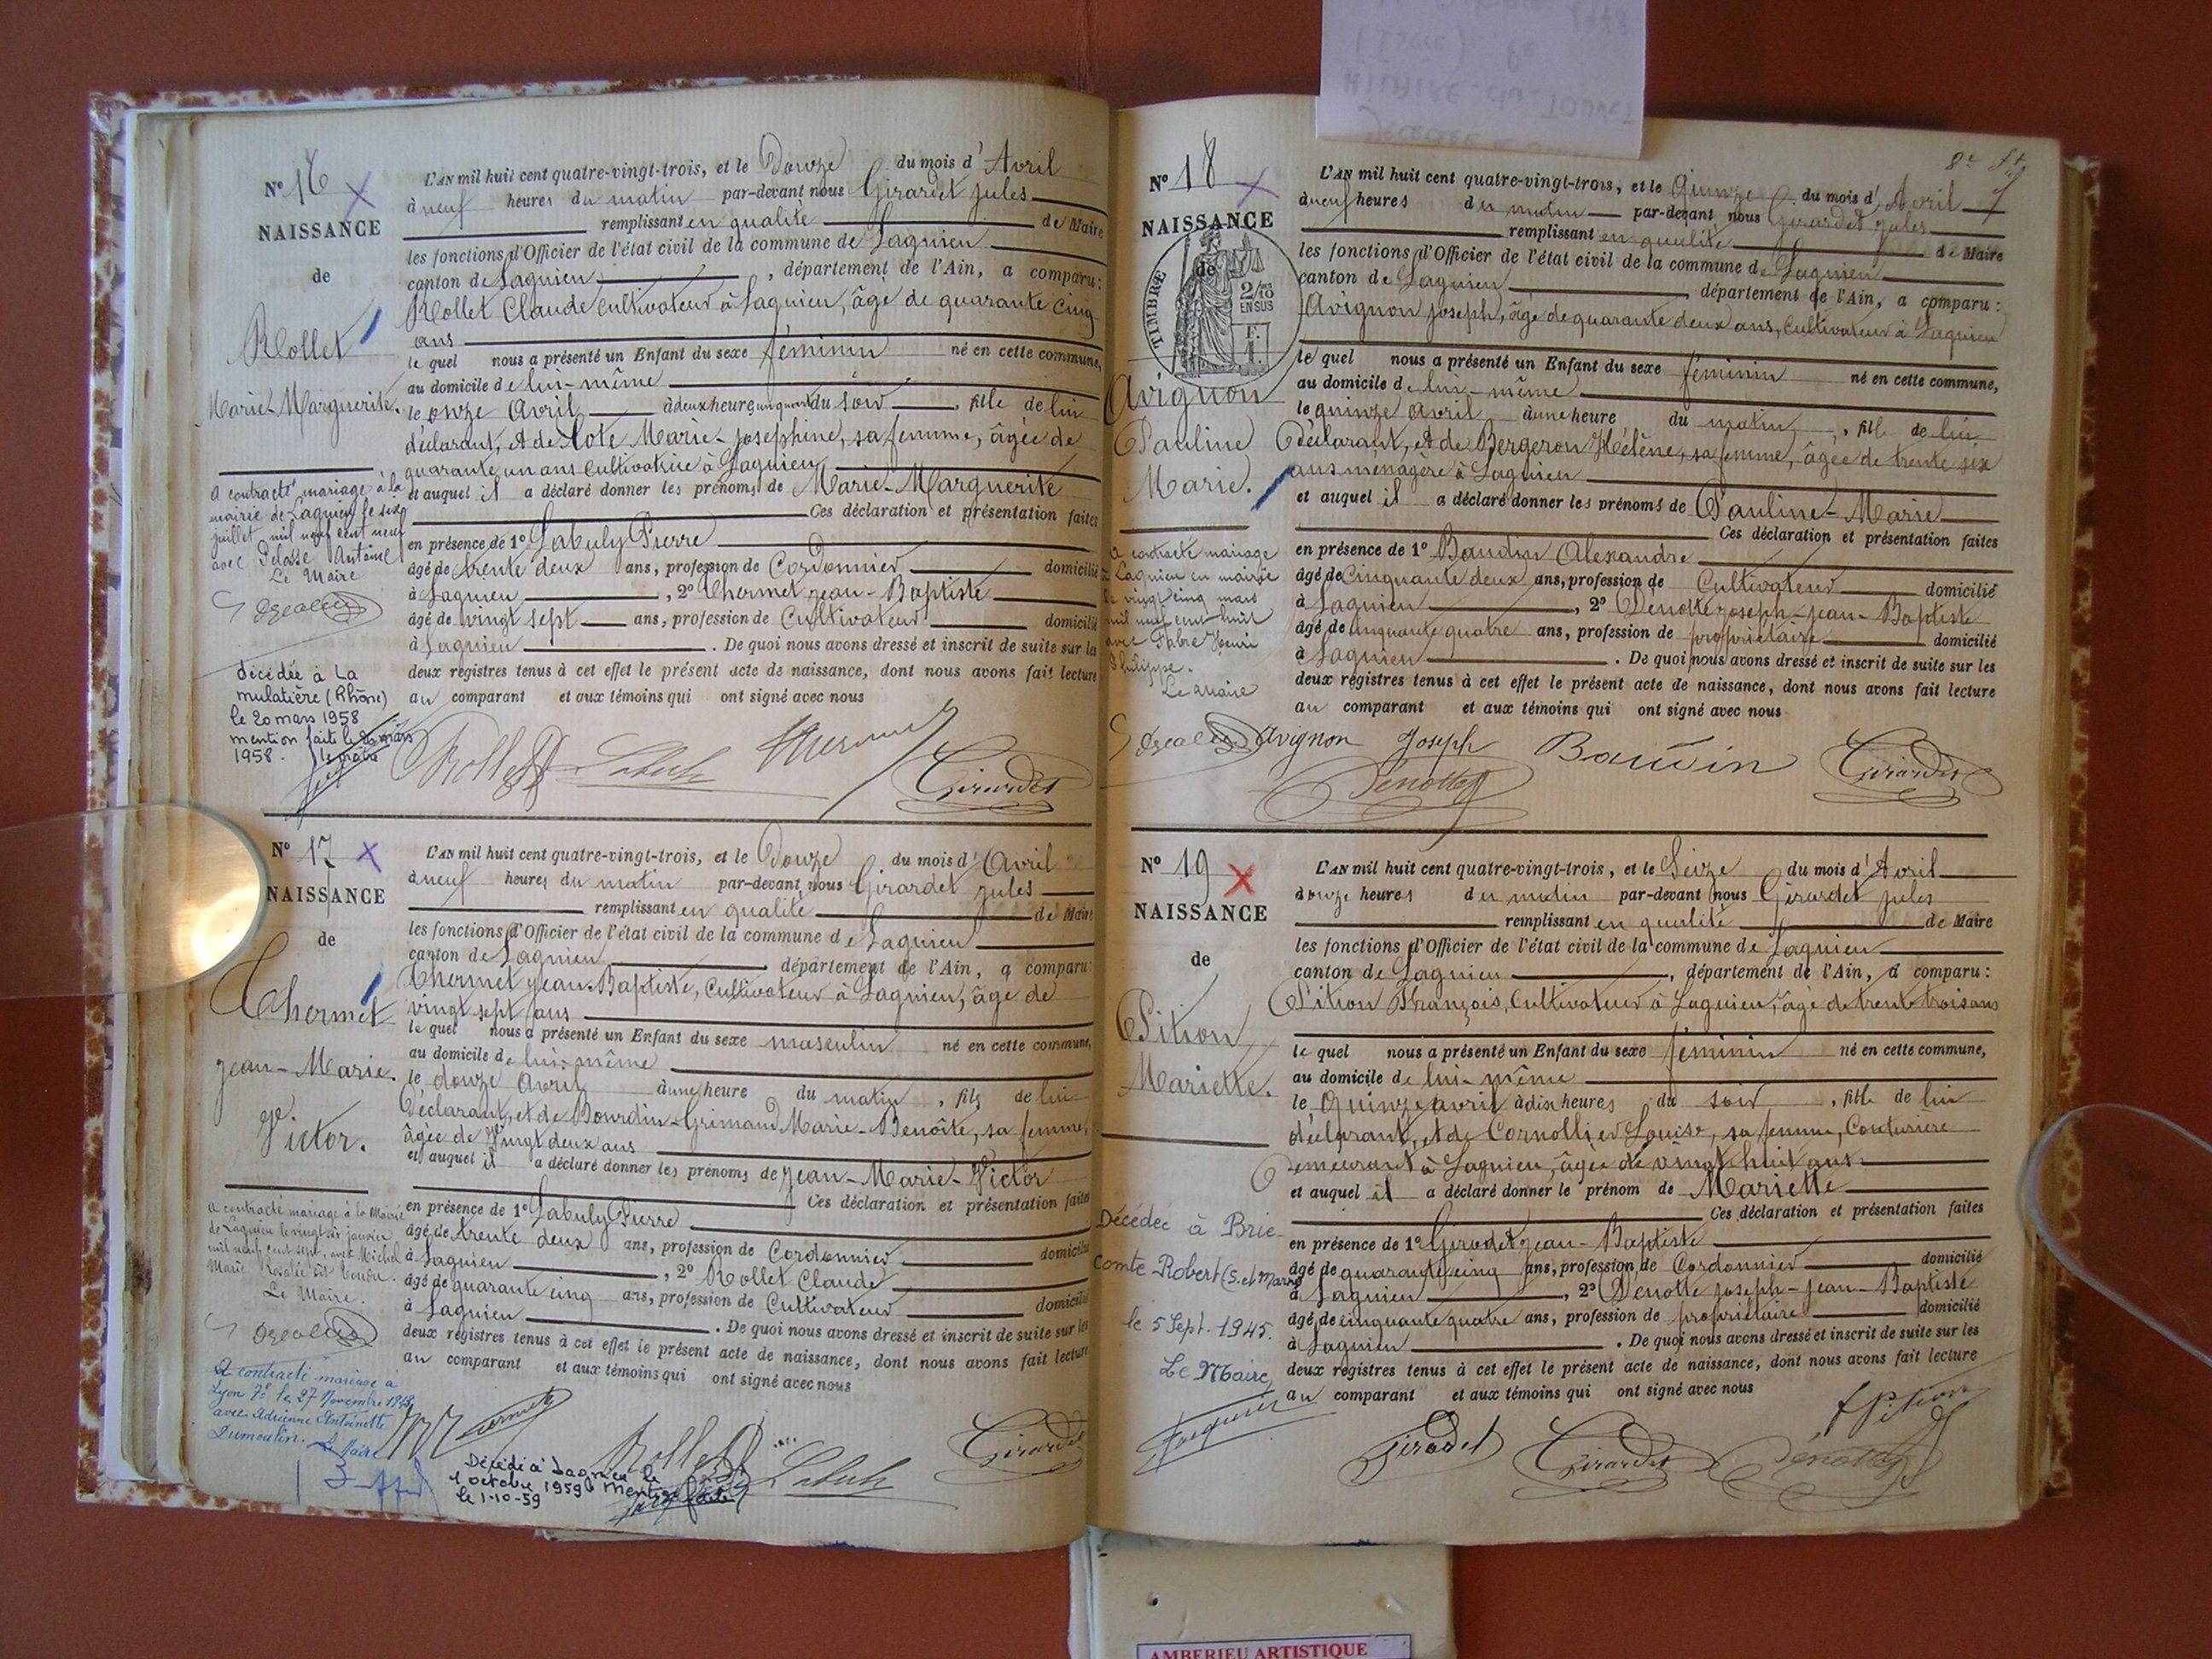 N° 16
NAISSANCE
de
Rollet
Marie-Marguerite.
a contracté mariage à la
mairie de Lagnieu le six
juillet mil neuf cent neuf
avec Pelosse Antoine
Le Maire
décédée à La
mulatière (Rhône)
le 20 mars 1958
mention faite le mars
1958. le maire
L'AN mil huit cent quatre-vingt-trois, et le Douze du mois d'Avril
à neuf heures du matin par-devant nous Girardet Jules
remplissant en qualité de Maire
les fonctions d'Officier de l'état civil de la commune de Lagnieu
canton de Lagnieu, département de l'Ain, a comparu:
Rollet Claude Cultivateur à Lagnieu, âgé de quarante cinq
ans
le quel nous a présenté un Enfant du sexe féminin né en cette commune,
au domicile de lui-même
le onze Avril à deux heures du soir, fille de lui
déclarant, et de Marie-Joséphine, sa femme, âgée de
quarante un ans Cultivatrice à Lagnieu
et auquel il a déclaré donner les prénoms de Marie-Marguerite
Ces déclaration et présentation faites
en présence de 1° Labuly Pierre
âgé de trente deux ans, profession de Cordonnier domicilié
à Lagnieu, 2° Thermet Jean-Baptiste
âgé de vingt sept ans, profession de Cultivateur domicilié
à Lagnieu. De quoi nous avons dressé et inscrit de suite sur la
deux registres tenus à cet effet le présent acte de naissance, dont nous avons fait lecture
au comparant et aux témoins qui ont signé avec nous
Rollet Labuly Thermet
Girardet
N° 17
NAISSANCE
de
Thermet
Jean-Marie.
Victor.
a contracté mariage à la Mairie
de Lagnieu le vingt six janvier
mil neuf cent sept, avec Michel
Marie Rosalie
Le Maire.
A contracté mariage à
Lyon 7e le 27 Novembre
avec Adrienne Antoinette
Dumoulin. Le Maire
L'AN mil huit cent quatre-vingt-trois, et le Douze du mois d'Avril
à neuf heures du matin par-devant nous Girardet Jules
remplissant en qualité de Maire
les fonctions d'Officier de l'état civil de la commune de Lagnieu
canton de Lagnieu, département de l'Ain, a comparu:
Thermet Jean-Baptiste, Cultivateur à Lagnieu, âgé de
vingt sept ans
le quel nous a présenté un Enfant du sexe masculin né en cette commune,
au domicile de lui-même
le douze Avril à une heure du matin, fils de lui
Déclarant, et de Bourdin-Grimaud Marie-Benoîte, sa femme,
âgée de vingt deux ans
et auquel il a déclaré donner les prénoms de Jean-Marie-Victor
Ces déclaration et présentation faites
en présence de 1° Labuly Pierre
âgé de trente deux ans, profession de Cordonnier domicilié
à Lagnieu, 2° Rollet Claude
âgé de quarante cinq ans, profession de Cultivateur domicilié
à Lagnieu. De quoi nous avons dressé et inscrit de suite sur les
deux registres tenus à cet effet le présent acte de naissance, dont nous avons fait lecture
au comparant et aux témoins qui ont signé avec nous
Rollet Labuly Girardet
Décédé à Lagnieu le
1 octobre 1959 Mention
le 1-10-59 faite
8e ft
N° 18
NAISSANCE
de
TIMBRE
2/10
EN SUS
Avignon
Pauline
Marie.
a contracté mariage
à Lagnieu en mairie
le vingt cinq mars
mil neuf cent huit
avec Fabre Henri
Philippe.
Le Maire
L'AN mil huit cent quatre-vingt-trois, et le Quinze du mois d'Avril
à neuf heures du matin par-devant nous Girardet Jules
remplissant en qualité de Maire
les fonctions d'Officier de l'état civil de la commune de Lagnieu
canton de Lagnieu département de l'Ain, a comparu:
Avignon Joseph, âgé de quarante deux ans, Cultivateur à Lagnieu
le quel nous a présenté un Enfant du sexe féminin né en cette commune,
au domicile de lui-même
le quinze avril à une heure du matin, fille de lui
Déclarant, et de Bergeron Hélène, sa femme, âgée de trente six
ans ménagère à Lagnieu
et auquel il a déclaré donner les prénoms de Pauline-Marie
Ces déclaration et présentation faites
en présence de 1° Baudin Alexandre
âgé de Cinquante deux ans, profession de Cultivateur domicilié
à Lagnieu, 2° Denotte Joseph-Jean-Baptiste
âgé de cinquante quatre ans, profession de propriétaire domicilié
à Lagnieu. De quoi nous avons dressé et inscrit de suite sur les
deux registres tenus à cet effet le présent acte de naissance, dont nous avons fait lecture
au comparant et aux témoins qui ont signé avec nous
Avignon Joseph Baudin Girardet
Denotte
N° 19
NAISSANCE
de
Pition
Mariette.
Décédée à Brie-
Comte-Robert (S. et Marne)
le 5 Sept. 1945.
Le Maire,
L'AN mil huit cent quatre-vingt-trois, et le Seize du mois d'Avril
à onze heures du matin par-devant nous Girardet Jules
remplissant en qualité de Maire
les fonctions d'Officier de l'état civil de la commune de Lagnieu
canton de Lagnieu, département de l'Ain, a comparu:
Pition François, Cultivateur à Lagnieu, âgé de trente trois ans
le quel nous a présenté un Enfant du sexe féminin né en cette commune,
au domicile de lui-même
le Quinze avril à dix heures du soir, fille de lui
déclarant, et de Cornollier Louise, sa femme, Couturière
Demeurant à Lagnieu, âgée de vingt huit ans
et auquel il a déclaré donner le prénom de Mariette
Ces déclaration et présentation faites
en présence de 1° Girodet Jean-Baptiste
âgé de quarante cinq ans, profession de Cordonnier domicilié
à Lagnieu, 2° Denotte Joseph-Jean-Baptiste
âgé de cinquante quatre ans, profession de propriétaire domicilié
à Lagnieu. De quoi nous avons dressé et inscrit de suite sur les
deux registres tenus à cet effet le présent acte de naissance, dont nous avons fait lecture
au comparant et aux témoins qui ont signé avec nous
fPition
Girodet Girardet Denotte
AMBERIEU ARTISTIQUE